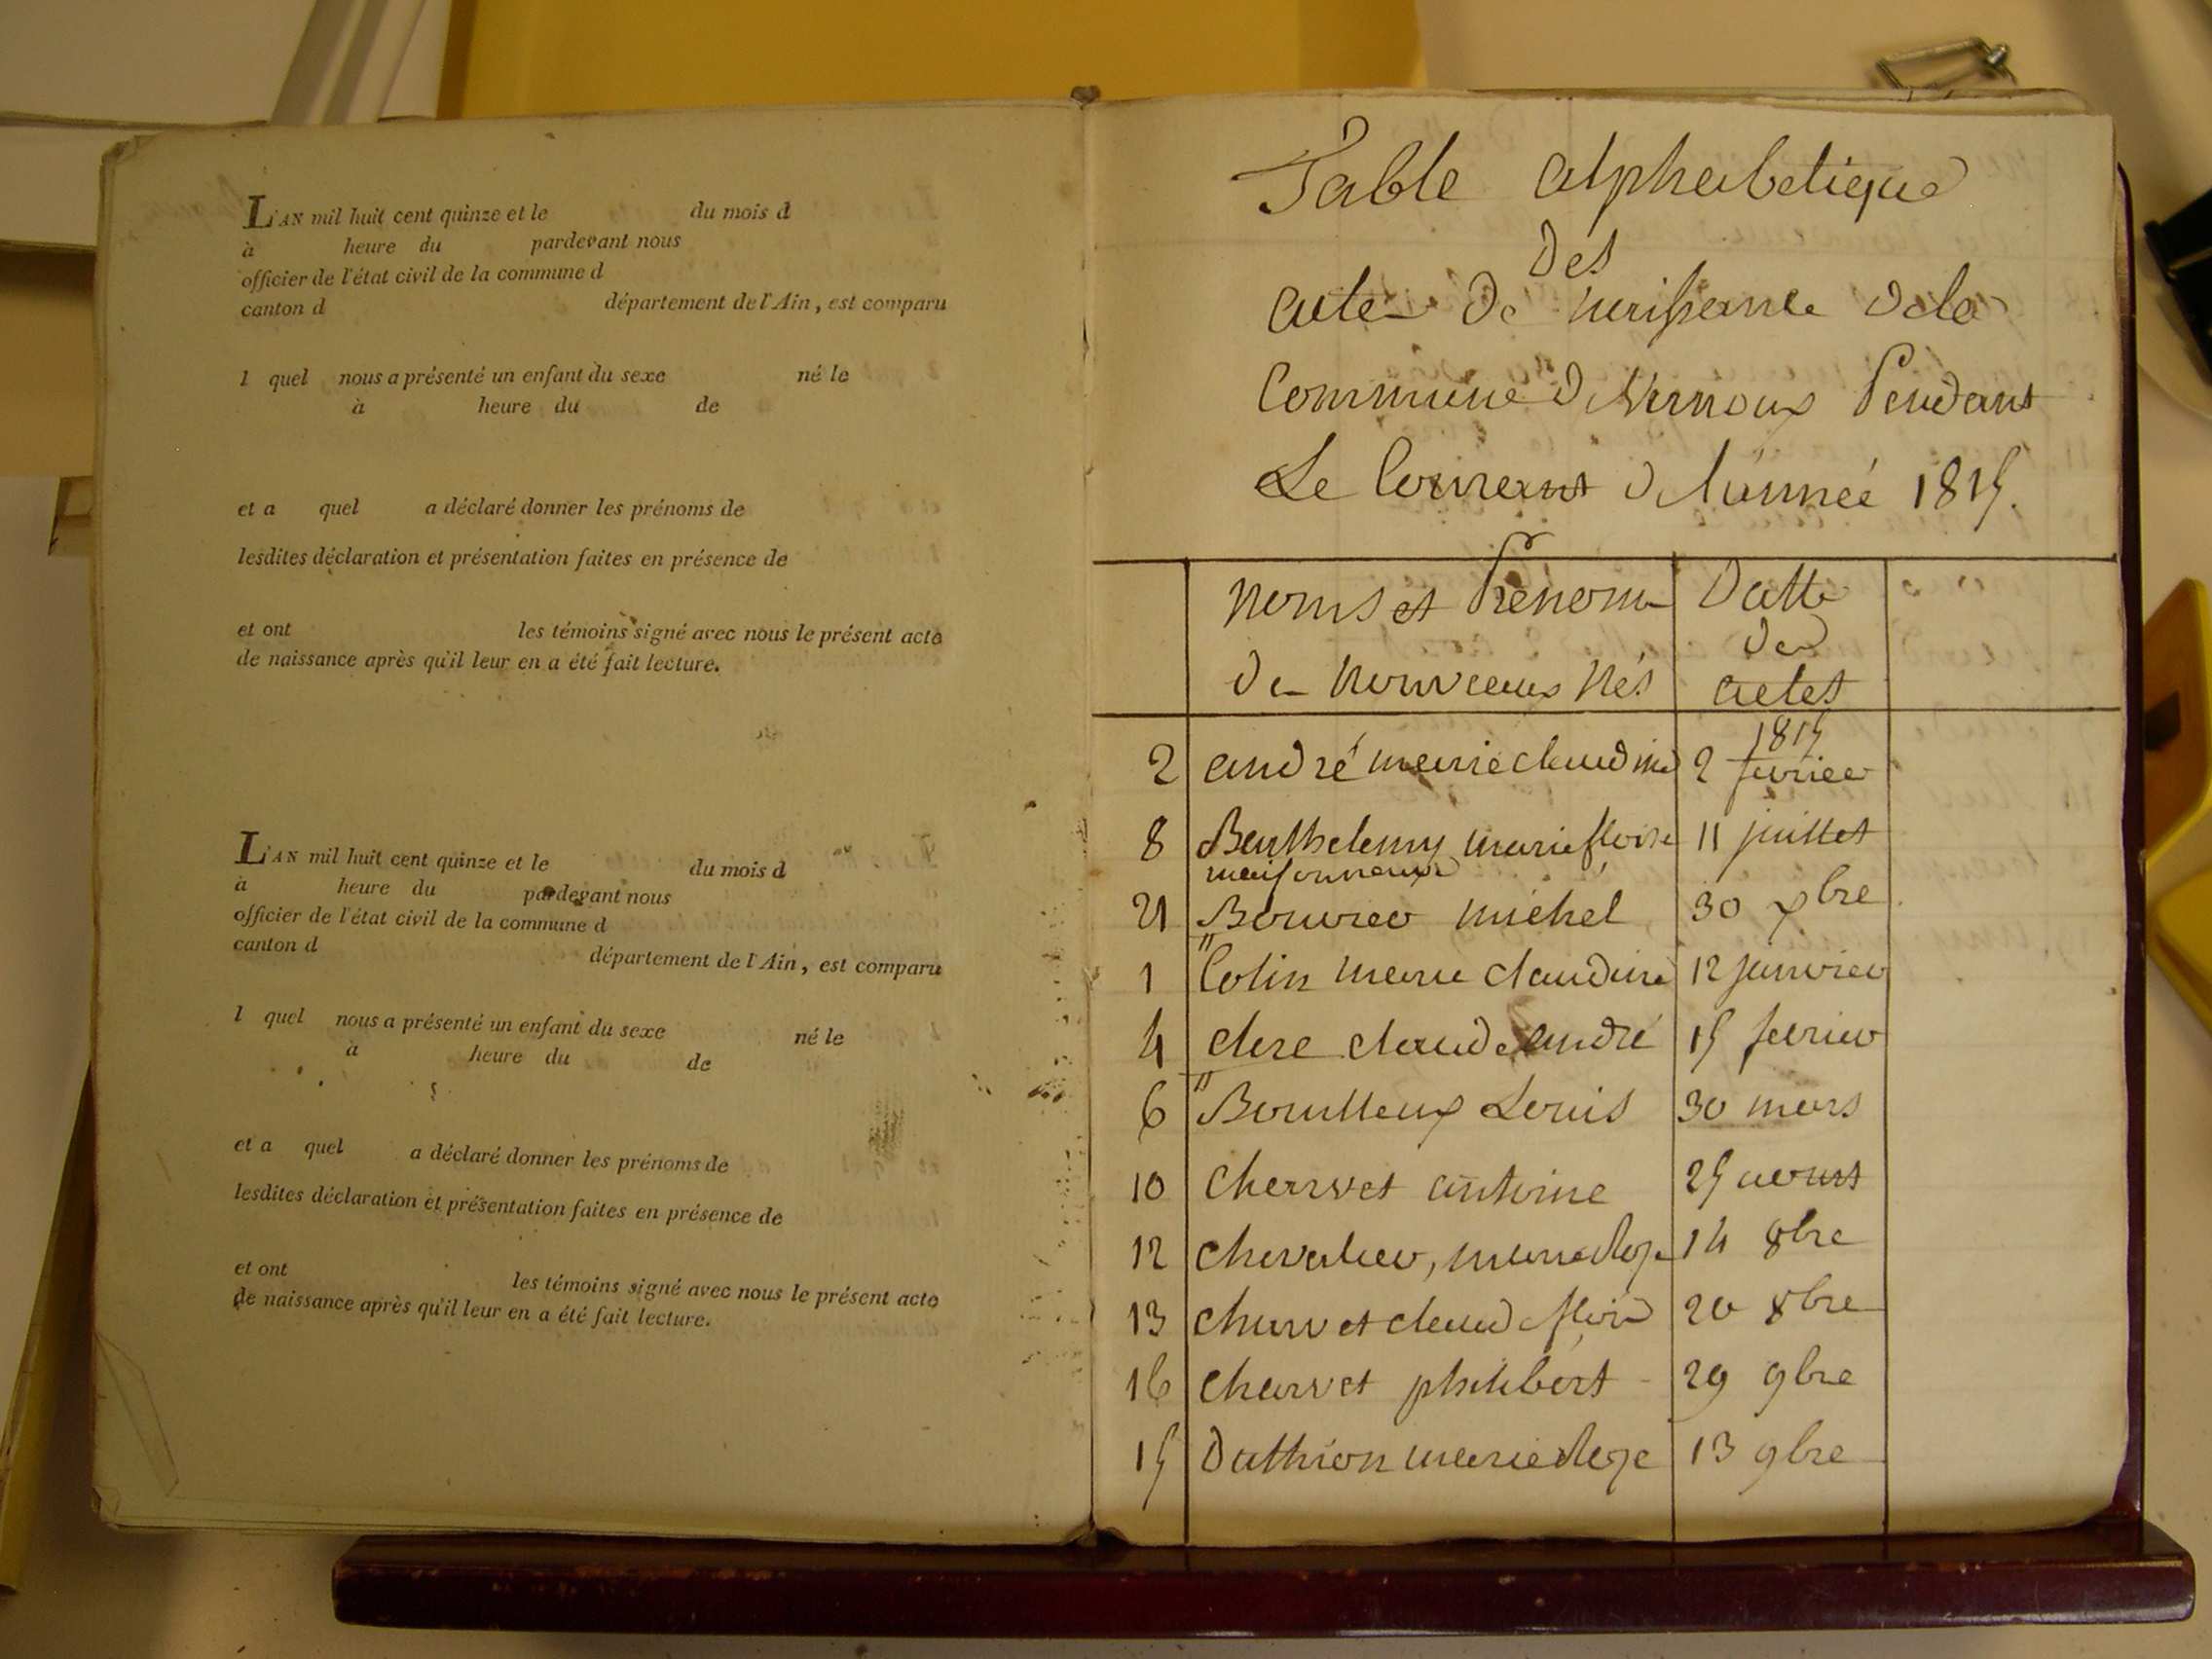 L'AN mil huit cent quinze et le du mois d
à heure du pardevant nous
officier de l'état civil de la commune d
canton d département de l'Ain, est comparu
l quel nous a présenté un enfant du sexe né le
à heure du de
et a quel a déclaré donner les prénoms de
lesdites déclaration et présentation faites en présence de
et ont les témoins signé avec nous le présent acte
de naissance après qu'il leur en a été fait lecture.
L'AN mil huit cent quinze et le du mois d
à heure du pardevant nous
officier de l'état civil de la commune d
canton d département de l'Ain, est comparu
l quel nous a présenté un enfant du sexe né le
à heure du de
et a quel a déclaré donner les prénoms de
lesdites déclaration et présentation faites en présence de
et ont les témoins signé avec nous le présent acte
de naissance après qu'il leur en a été fait lecture.
Table alphabetique
Des
acte De naissance Dela
Commune D Vernoux Pendant
Le Courant D L'année 1815.
Noms et Prenom Datte
De Nouveaux Nés Des
actes
1815
2 andré marie claudine 2 fevrier
8 Barthelemy marie 11 juillet
21 Bouvier michel 30 xbre
1 Colin marie claudine 12 janvier
4 clere claude andré 15 fevrier
6 " Bouilleux Louis 30 mars
10 Charvet antoine 25 aoust
12 chevalier, marie 14 8bre
13 charvet claud 20 8bre
16 charvet philibert 29 9bre
15 Dathion marie 13 9bre